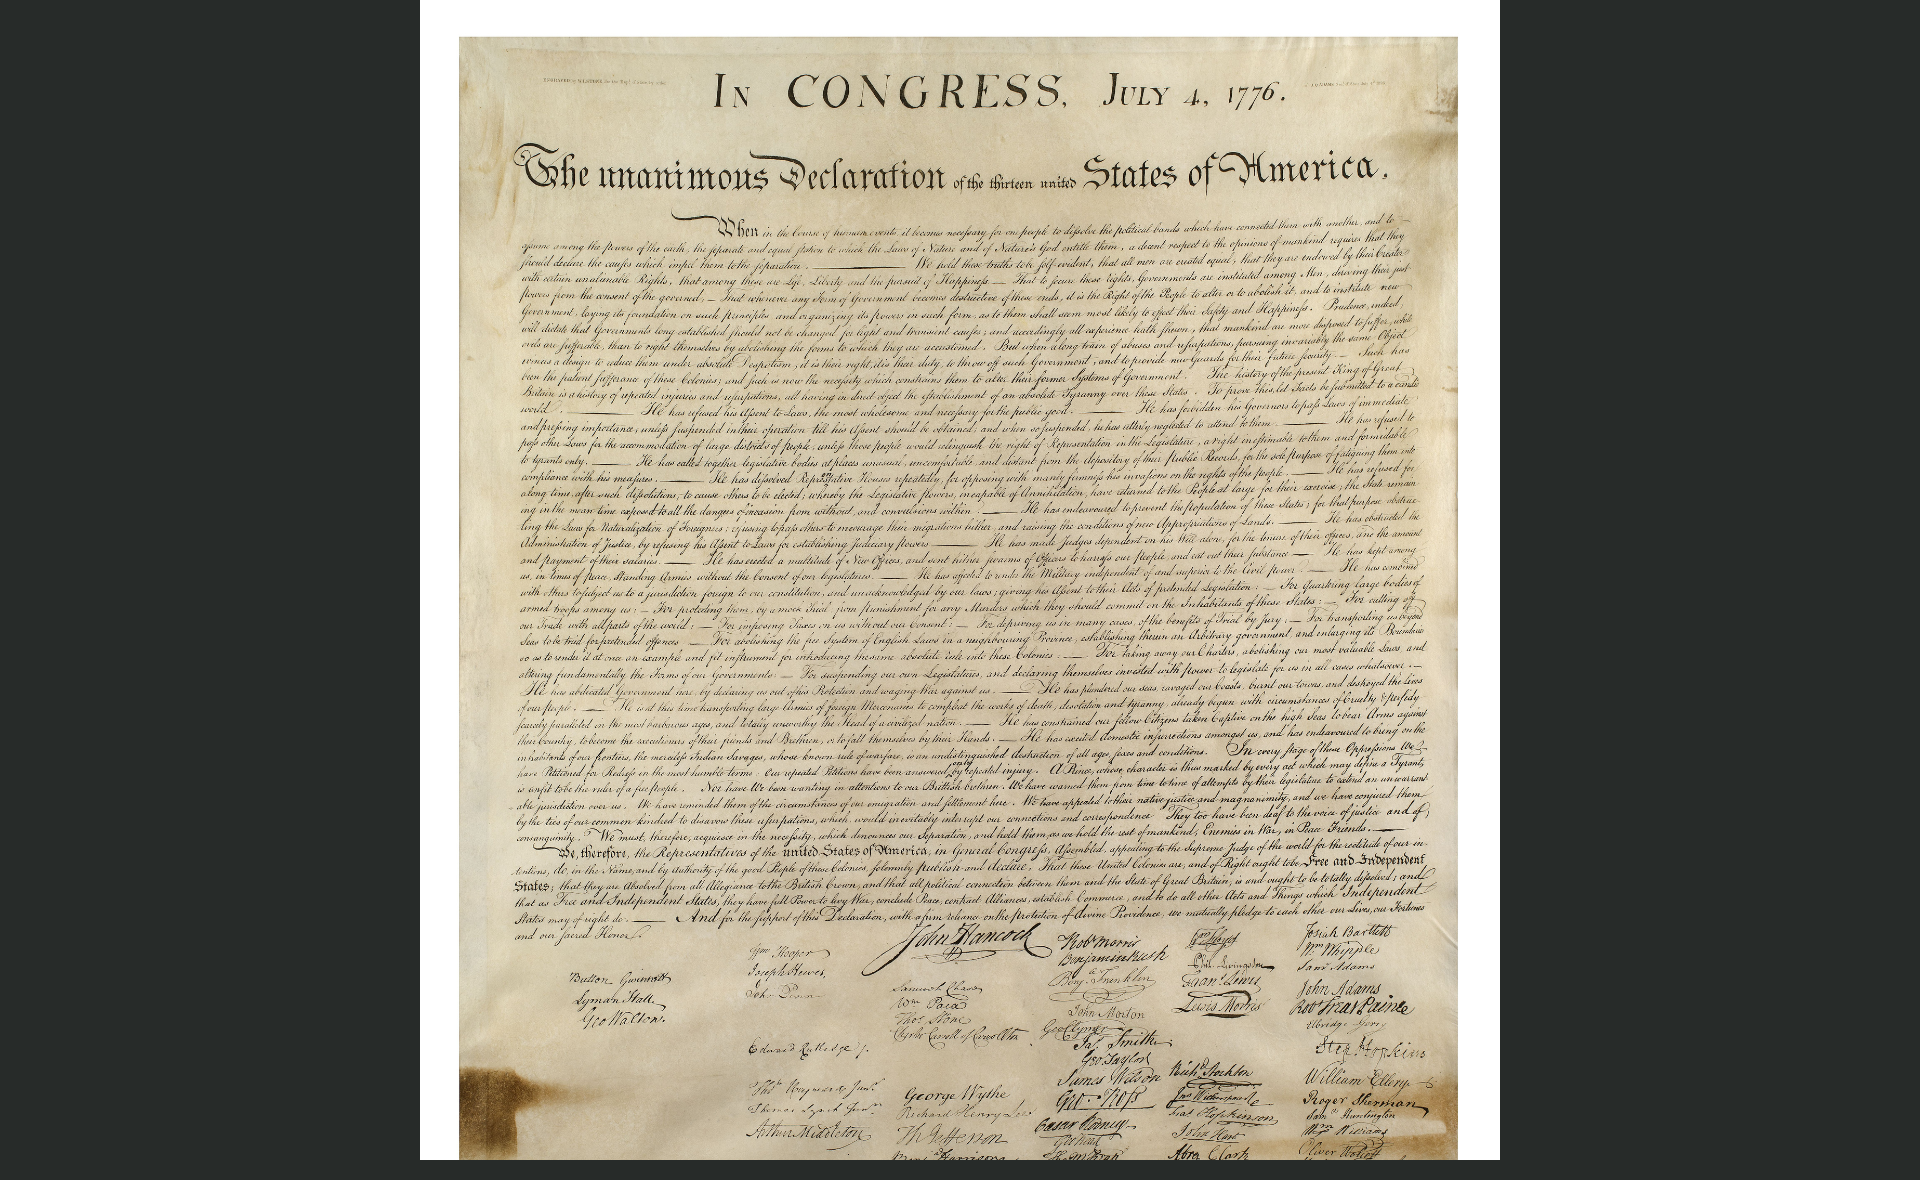 IN CONGRESS, JULY 4, 1776.
The unanimous Declaration of the thirteen united States of America,
When in the Course of human events, it becomes necessary for one people to dissolve the political bands which have connected them with another, and to
assume among the powers of the earth, the separate and equal station to which the Laws of Nature and of Nature's God entitle them, a decent respect to the opinions of mankind requires that they
should declare the causes which impel them to the separation. We hold these truths to be self-evident, that all men are created equal, that they are endowed by their Creator
with certain unalienable Rights, that among these are Life, Liberty and the pursuit of Happiness.— That to secure these rights, Governments are instituted among Men, deriving their just
powers from the consent of the governed,— That whenever any Form of Government becomes destructive of these ends, it is the Right of the People to alter or to abolish it, and to institute new
Government, laying its foundation on such principles and organizing its powers in such form, as to them shall seem most likely to effect their Safety and Happiness. Prudence, indeed,
will dictate that Governments long established should not be changed for light and transient causes; and accordingly all experience hath shewn, that mankind are more disposed to suffer, while
evils are sufferable, than to right themselves by abolishing the forms to which they are accustomed. But when a long train of abuses and usurpations, pursuing invariably the same Object
evinces a design to reduce them under absolute Despotism, it is their right, it is their duty, to throw off such Government, and to provide new Guards for their future security.— Such has
been the patient sufferance of these Colonies; and such is now the necessity which constrains them to alter their former Systems of Government. The history of the present King of Great
Britain is a history of repeated injuries and usurpations, all having in direct object the establishment of an absolute Tyranny over these States. To prove this, let Facts be submitted to a candid
world. — He has refused his Assent to Laws, the most wholesome and necessary for the public good. — He has forbidden his Governors to pass Laws of immediate
and pressing importance, unless suspended in their operation till his Assent should be obtained; and when so suspended, he has utterly neglected to attend to them. — He has refused to
pass other Laws for the accommodation of large districts of people, unless those people would relinquish the right of Representation in the Legislature, a right inestimable to them and formidable
to tyrants only. — He has called together legislative bodies at places unusual, uncomfortable, and distant from the depository of their public Records, for the sole purpose of fatiguing them into
compliance with his measures. — He has dissolved Representative Houses repeatedly, for opposing with manly firmness his invasions on the rights of the people. — He has refused for
a long time, after such dissolutions, to cause others to be elected; whereby the Legislative powers, incapable of Annihilation, have returned to the People at large for their exercise; the State remain-
ing in the mean time exposed to all the dangers of invasion from without, and convulsions within. — He has endeavoured to prevent the population of these States; for that purpose obstruc-
ting the Laws for Naturalization of Foreigners; refusing to pass others to encourage their migrations hither, and raising the conditions of new Appropriations of Lands. — He has obstructed the
Administration of Justice, by refusing his Assent to Laws for establishing Judiciary powers. — He has made Judges dependent on his Will alone, for the tenure of their offices, and the amount
and payment of their salaries. — He has erected a multitude of New Offices, and sent hither swarms of Officers to harrass our people, and eat out their substance. — He has kept among
us, in times of peace, Standing Armies without the Consent of our legislatures. — He has affected to render the Military independent of and superior to the Civil power. — He has combined
with others to subject us to a jurisdiction foreign to our constitution, and unacknowledged by our laws; giving his Assent to their Acts of pretended Legislation: — For Quartering large bodies of
armed troops among us: — For protecting them, by a mock Trial, from punishment for any Murders which they should commit on the Inhabitants of these States: — For cutting off
our Trade with all parts of the world: — For imposing Taxes on us without our Consent: — For depriving us in many cases, of the benefits of Trial by Jury: — For transporting us beyond
Seas to be tried for pretended offences — For abolishing the free System of English Laws in a neighbouring Province, establishing therein an Arbitrary government, and enlarging its Boundaries
so as to render it at once an example and fit instrument for introducing the same absolute rule into these Colonies: — For taking away our Charters, abolishing our most valuable Laws, and
altering fundamentally the Forms of our Governments: — For suspending our own Legislatures, and declaring themselves invested with power to legislate for us in all cases whatsoever. —
He has abdicated Government here, by declaring us out of his Protection and waging War against us. — He has plundered our seas, ravaged our Coasts, burnt our towns, and destroyed the lives
of our people. — He is at this time transporting large Armies of foreign Mercenaries to compleat the works of death, desolation and tyranny, already begun with circumstances of Cruelty & perfidy
scarcely paralleled in the most barbarous ages, and totally unworthy the Head of a civilized nation. — He has constrained our fellow Citizens taken Captive on the high Seas to bear Arms against
their Country, to become the executioners of their friends and Brethren, or to fall themselves by their Hands. — He has excited domestic insurrections amongst us, and has endeavoured to bring on the
inhabitants of our frontiers, the merciless Indian Savages, whose known rule of warfare, is an undistinguished destruction of all ages, sexes and conditions. In every stage of these Oppressions We
have Petitioned for Redress in the most humble terms: Our repeated Petitions have been answered only by repeated injury. A Prince, whose character is thus marked by every act which may define a Tyrant,
is unfit to be the ruler of a free people. Nor have We been wanting in attentions to our Brittish brethren. We have warned them from time to time of attempts by their legislature to extend an unwarrant-
able jurisdiction over us. We have reminded them of the circumstances of our emigration and settlement here. We have appealed to their native justice and magnanimity, and we have conjured them
by the ties of our common kindred to disavow these usurpations, which, would inevitably interrupt our connections and correspondence. They too have been deaf to the voice of justice and of
consanguinity. We must, therefore, acquiesce in the necessity, which denounces our Separation, and hold them, as we hold the rest of mankind, Enemies in War, in Peace Friends. —
We, therefore, the Representatives of the united States of America, in General Congress, Assembled, appealing to the Supreme Judge of the world for the rectitude of our in-
tentions, do, in the Name, and by Authority of the good People of these Colonies, solemnly publish and declare, That these United Colonies are, and of Right ought to be Free and Independent
States; that they are Absolved from all Allegiance to the British Crown, and that all political connection between them and the State of Great Britain, is and ought to be totally dissolved; and
that as Free and Independent States, they have full Power to levy War, conclude Peace, contract Alliances, establish Commerce, and to do all other Acts and Things which Independent
States may of right do. — And for the support of this Declaration, with a firm reliance on the protection of divine Providence, we mutually pledge to each other our Lives, our Fortunes
and our sacred Honor.
Button Gwinnett
Lyman Hall.
Geo Walton.
Wm Hooper
Joseph Hewes,
John Penn
Edward Rutledge /.
Thos Heyward Junr.
Thomas Lynch Junr.
Arthur Middleton
John Hancock
Samuel Chase
Wm Paca
Thos Stone
Charles Carroll of Carrollton
George Wythe
Richard Henry Lee
Th Jefferson
Benj Harrison
Robt Morris
Benjamin Rush
Benj. Franklin
John Morton
Geo Clymer
Jas. Smith.
Geo. Taylor
James Wilson
Geo. Ross
Caesar Rodney
Geo Read
Tho M:Kean
Wm Floyd
Phil. Livingston
Frans. Lewis
Lewis Morris
Richd. Stockton
Jno Witherspoon
Fras. Hopkinson
John Hart
Abra Clark
Josiah Bartlett
Wm Whipple
Saml Adams
John Adams
Robt Treat Paine
Elbridge Gerry
Step. Hopkins
William Ellery
Roger Sherman
Saml Huntington
Wm Williams
Oliver Wolcott